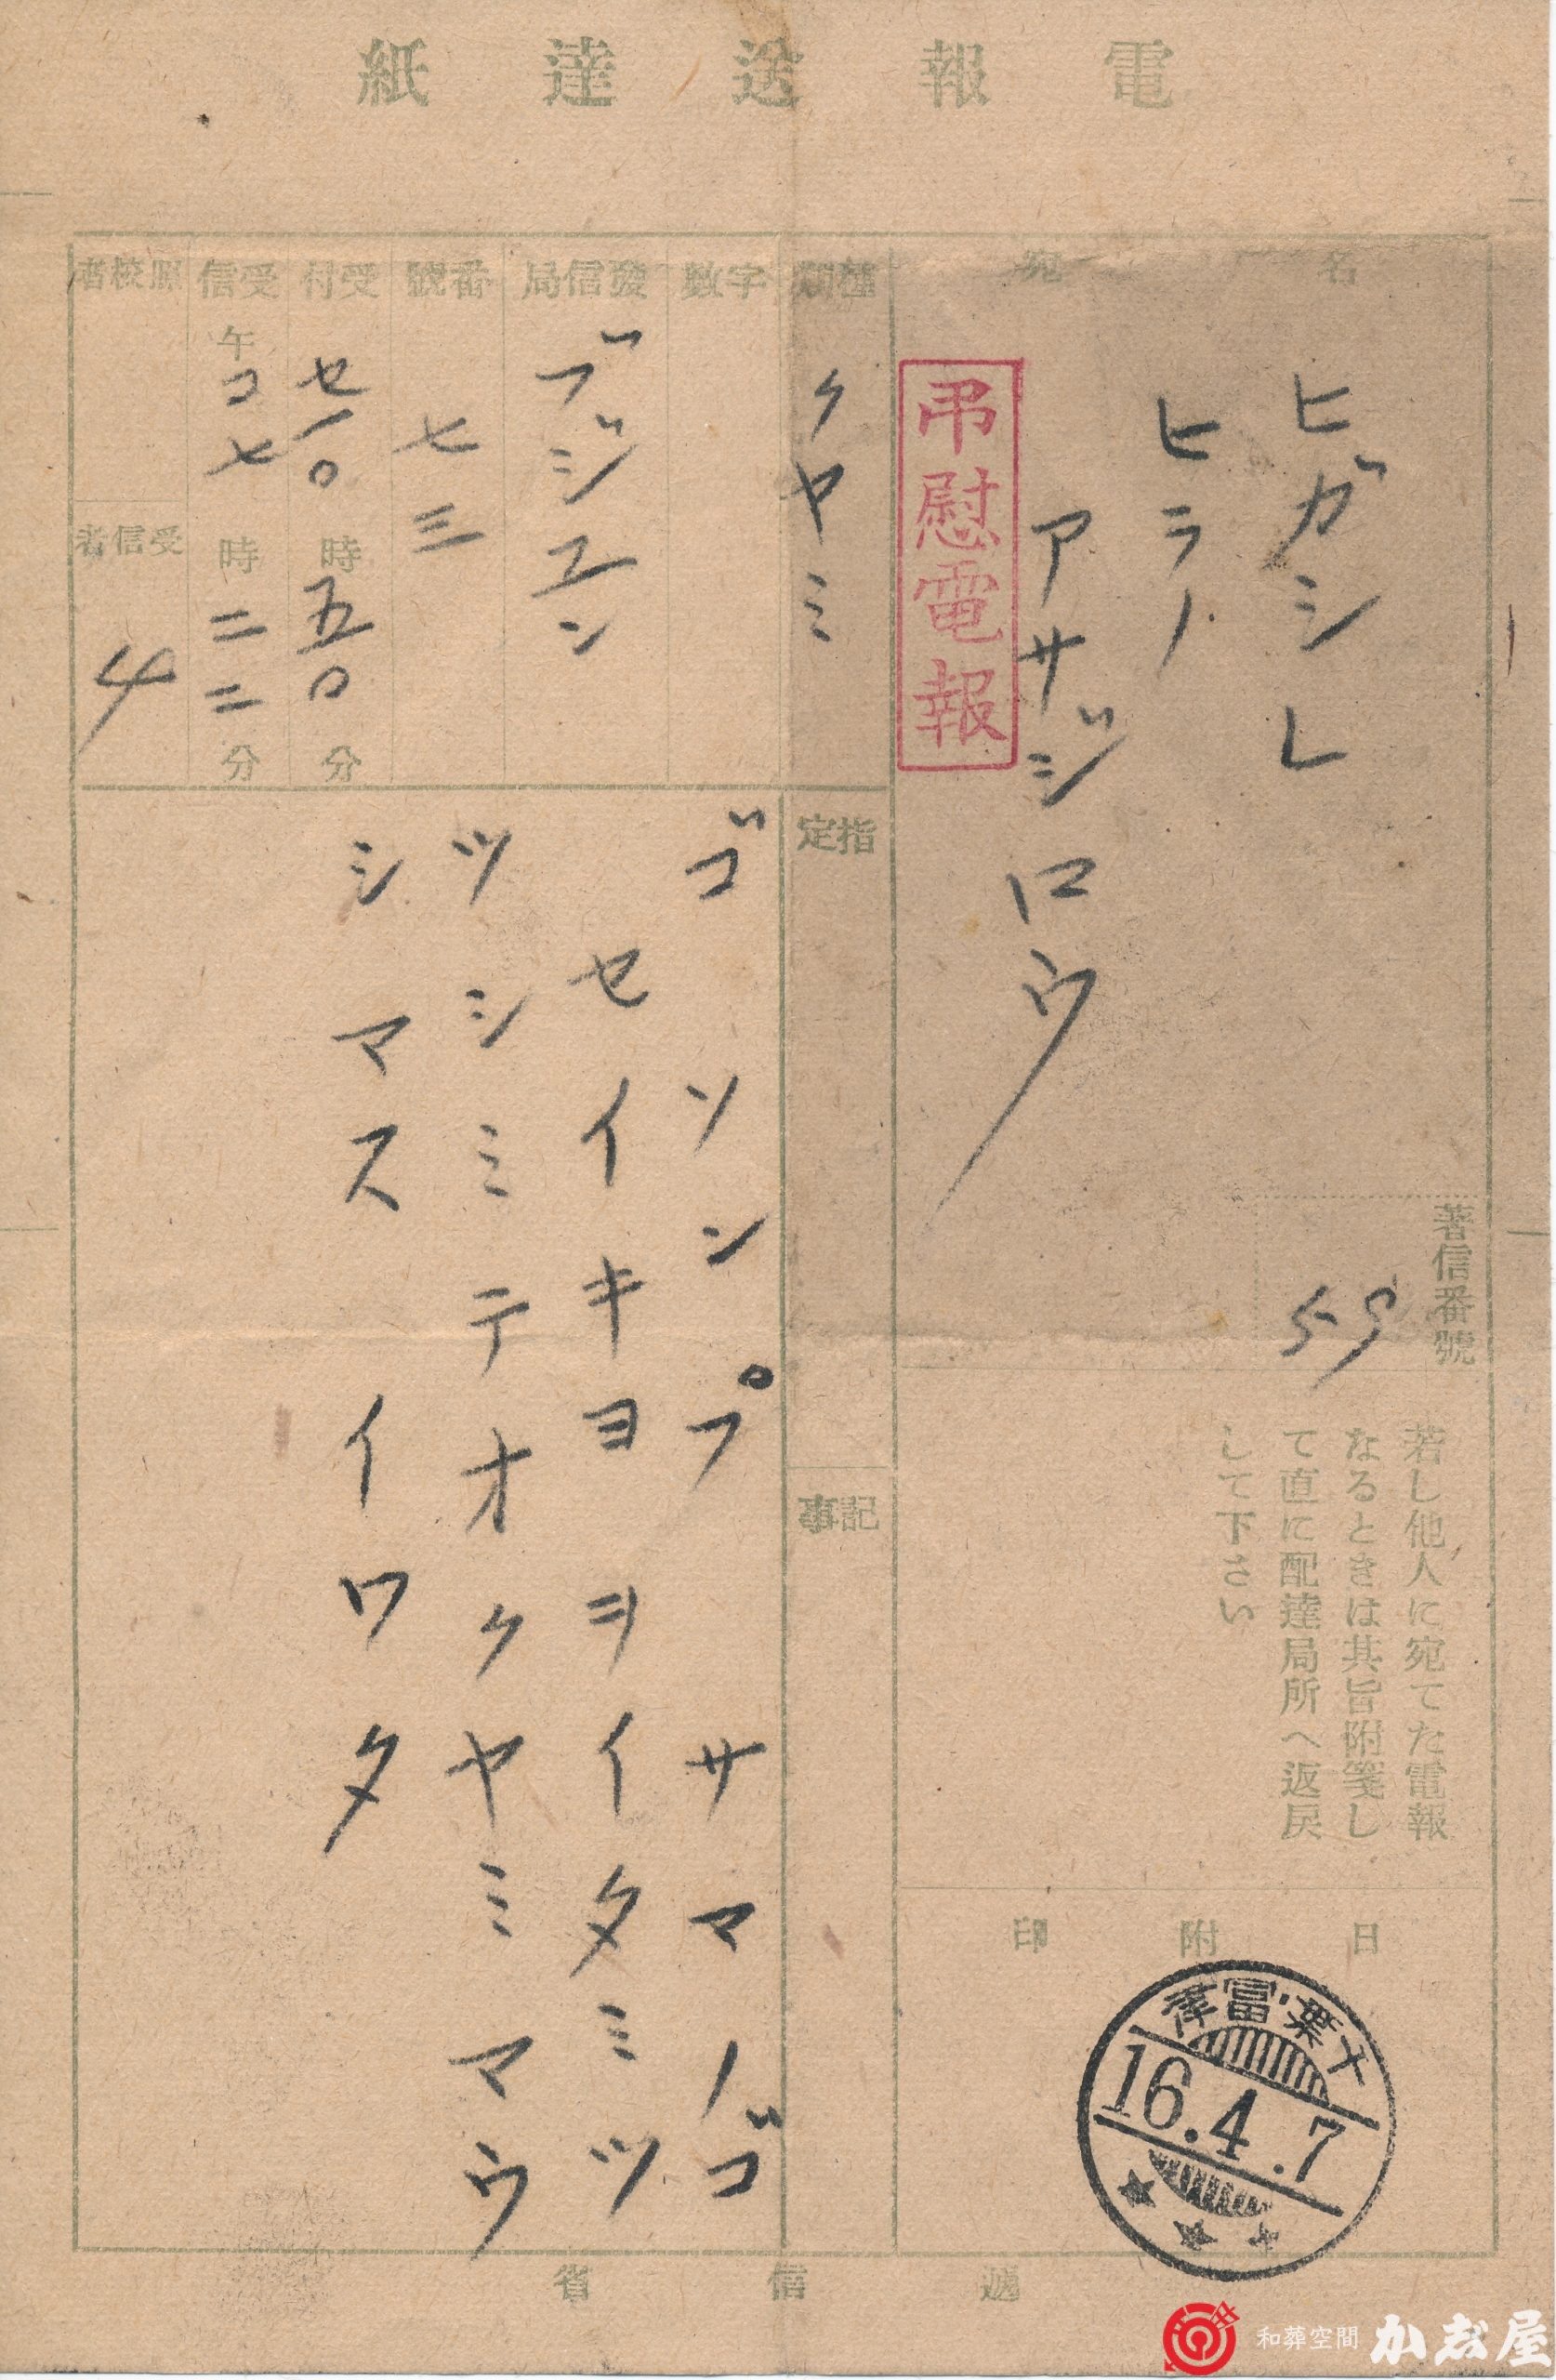 電報送達紙
名宛
ヒガシレ
ヒラノ
アサジロウ
弔慰電報
著信番號
59
若し他人に宛てた電報
なるときは其旨附箋し
て直に配達局所へ返戻
して下さい
日附印
千葉・富津
16.4.7
種類
クヤミ
字數
發信局
ブジエン
番號
七三
受付
セ一〇時五〇分
受信
午コ七時二二分
照校者
受信者
指定
記事
ゴソンプサマノゴ
セイキヨヲイタミツ
ツシミテオクヤミマウ
シマスイワタ
遞信省
和葬空間
かじ屋